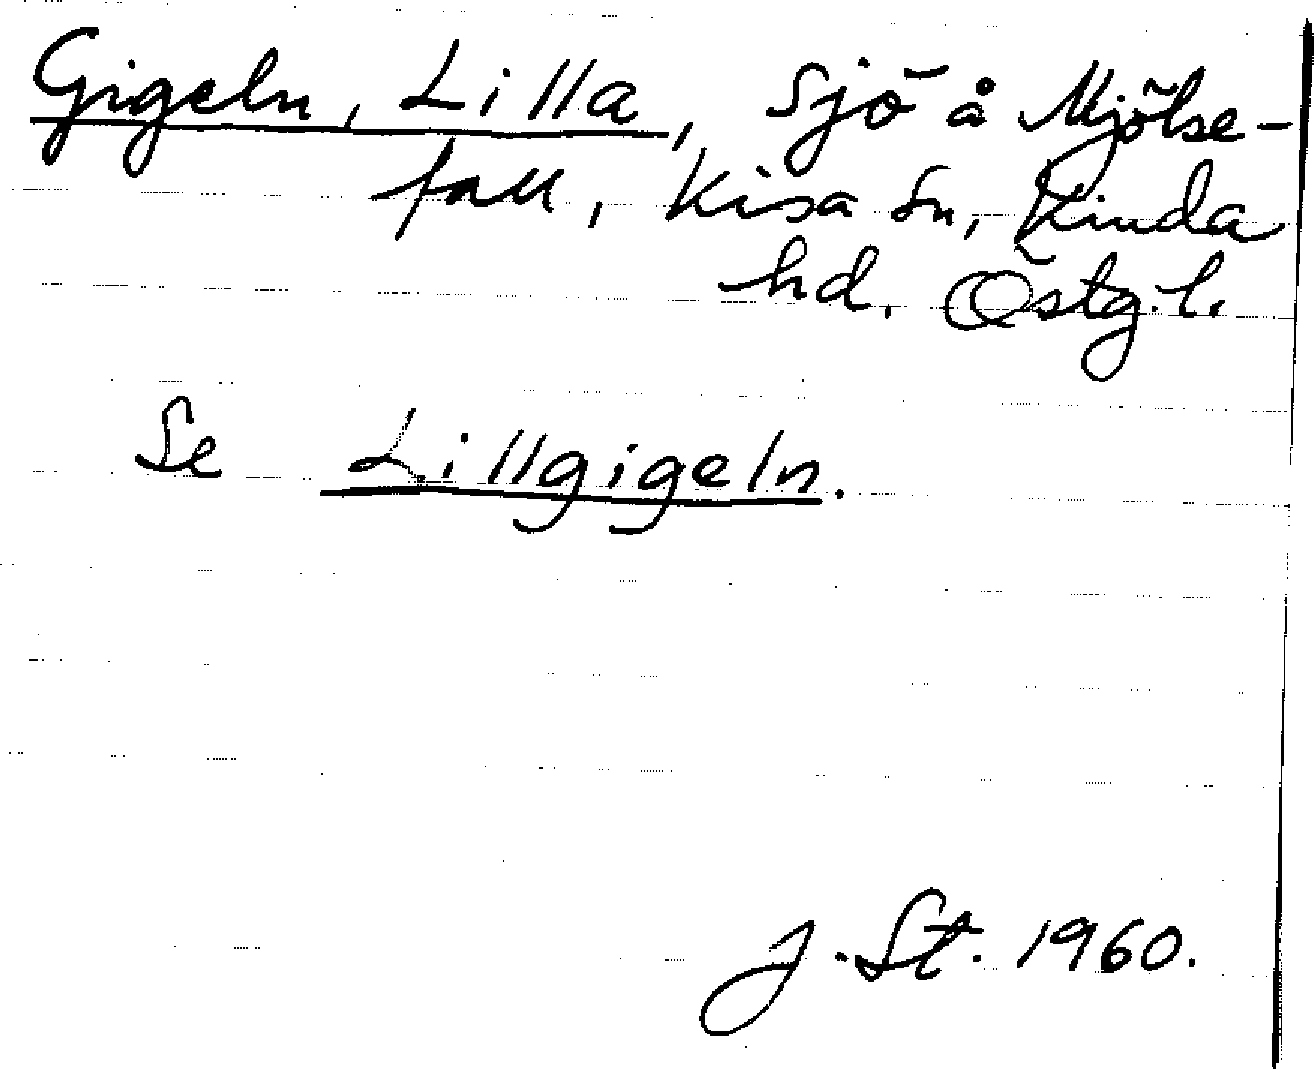 Gigeln, Lilla, sjö å Mjölse-
fall, Kisa sn, Kinda
hd. Östg. l.
Se Lillgigeln.
J. St. 1960.